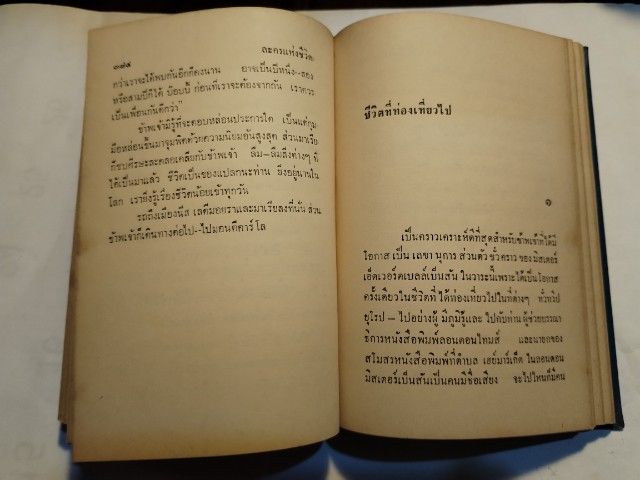 ๓๗๔
ละครแห่งชีวิต
กว่าเราจะได้พบกันอีกก็คงนาน อาจเป็นปีหนึ่ง--สอง
หรือสามปีก็ได้ บ๊อบบี้ ก่อนที่เราจะต้องจากกัน เราควร
เป็นเพื่อนกันดีกว่า"
ข้าพเจ้ามิรู้ที่จะตอบหล่อนประการใด เป็นแต่กุม
มือหล่อนขึ้นมาจุมพิตด้วยความนิยมอันสูงสุด ส่วนมาเรีย
ก็ซบศีรษะลงคลอเคลียกับข้าพเจ้า ลืม--ลืมสิ่งต่างๆ ที่
ได้เป็นมาแล้ว ชีวิตเป็นของแปลกนะท่าน ยิ่งอยู่นานใน
โลก เรายิ่งรู้เรื่องชีวิตน้อยเข้าทุกวัน
รถถึงเมืองนีส เลดีมอยราและมาเรียลงที่นั่น ส่วน
ข้าพเจ้าก็เดินทางต่อไป--ไปมอนติคาร์โล
ชีวิตที่ท่องเที่ยวไป
๑
เป็นคราวเคราะห์ดีที่สุดสำหรับข้าพเจ้าที่ได้มี
โอกาส เป็น เลขา นุการ ส่วนตัว ชั่วคราว ของ มิสเตอร์
เอ็ดเวอร์ดเบลล์เบ็นสัน ในวาระนี้เพราะได้เป็นโอกาส
ครั้งเดียวในชีวิตที่ ได้ท่องเที่ยวไปในที่ต่างๆ ทั่วทวีป
ยุโรป -- ไปอย่างผู้ มีภูมิรู้และ ไปกับท่าน ผู้ช่วยบรรณา
ธิการหนังสือพิมพ์ลอนดอนไทมส์ และนายกของ
สโมสรหนังสือพิมพ์ที่ตำบล เฮย์มาร์เก็ต ในลอนดอน
มิสเตอร์เบ็นสันเป็นคนมีชื่อเสียง จะไปไหนก็มีคน